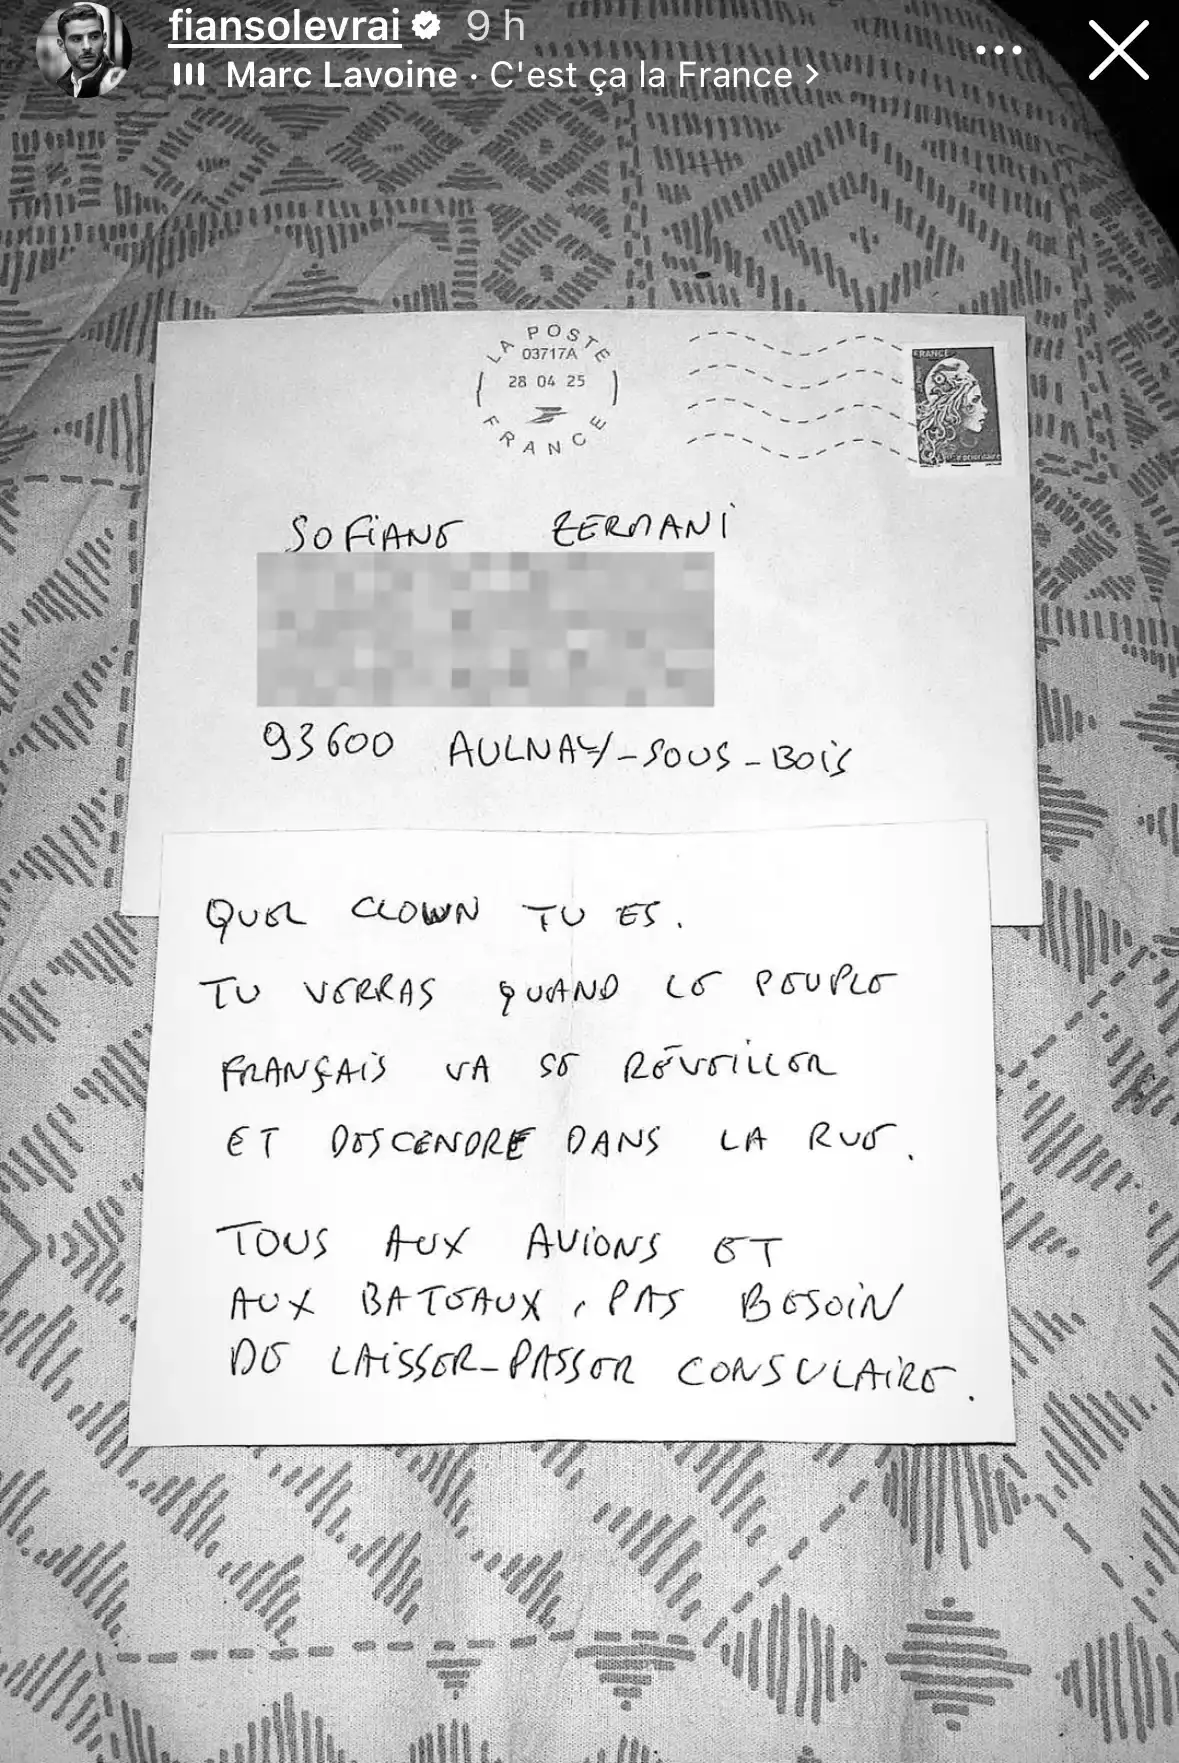 fiansolevrai 9 h
Marc Lavoine · C'est ça la France >
LA POSTE
03717A
28 04 25
FRANCE
FRANCE
SOFIANE ZERMANI
93600 AULNAY-SOUS-BOIS
QUEL CLOWN TU ES.
TU VERRAS QUAND LE PEUPLE
FRANÇAIS VA SE RÉVEILLER
ET DESCENDRE DANS LA RUE.
TOUS AUX AVIONS ET
AUX BATEAUX, PAS BESOIN
DE LAISSER-PASSER CONSULAIRE.